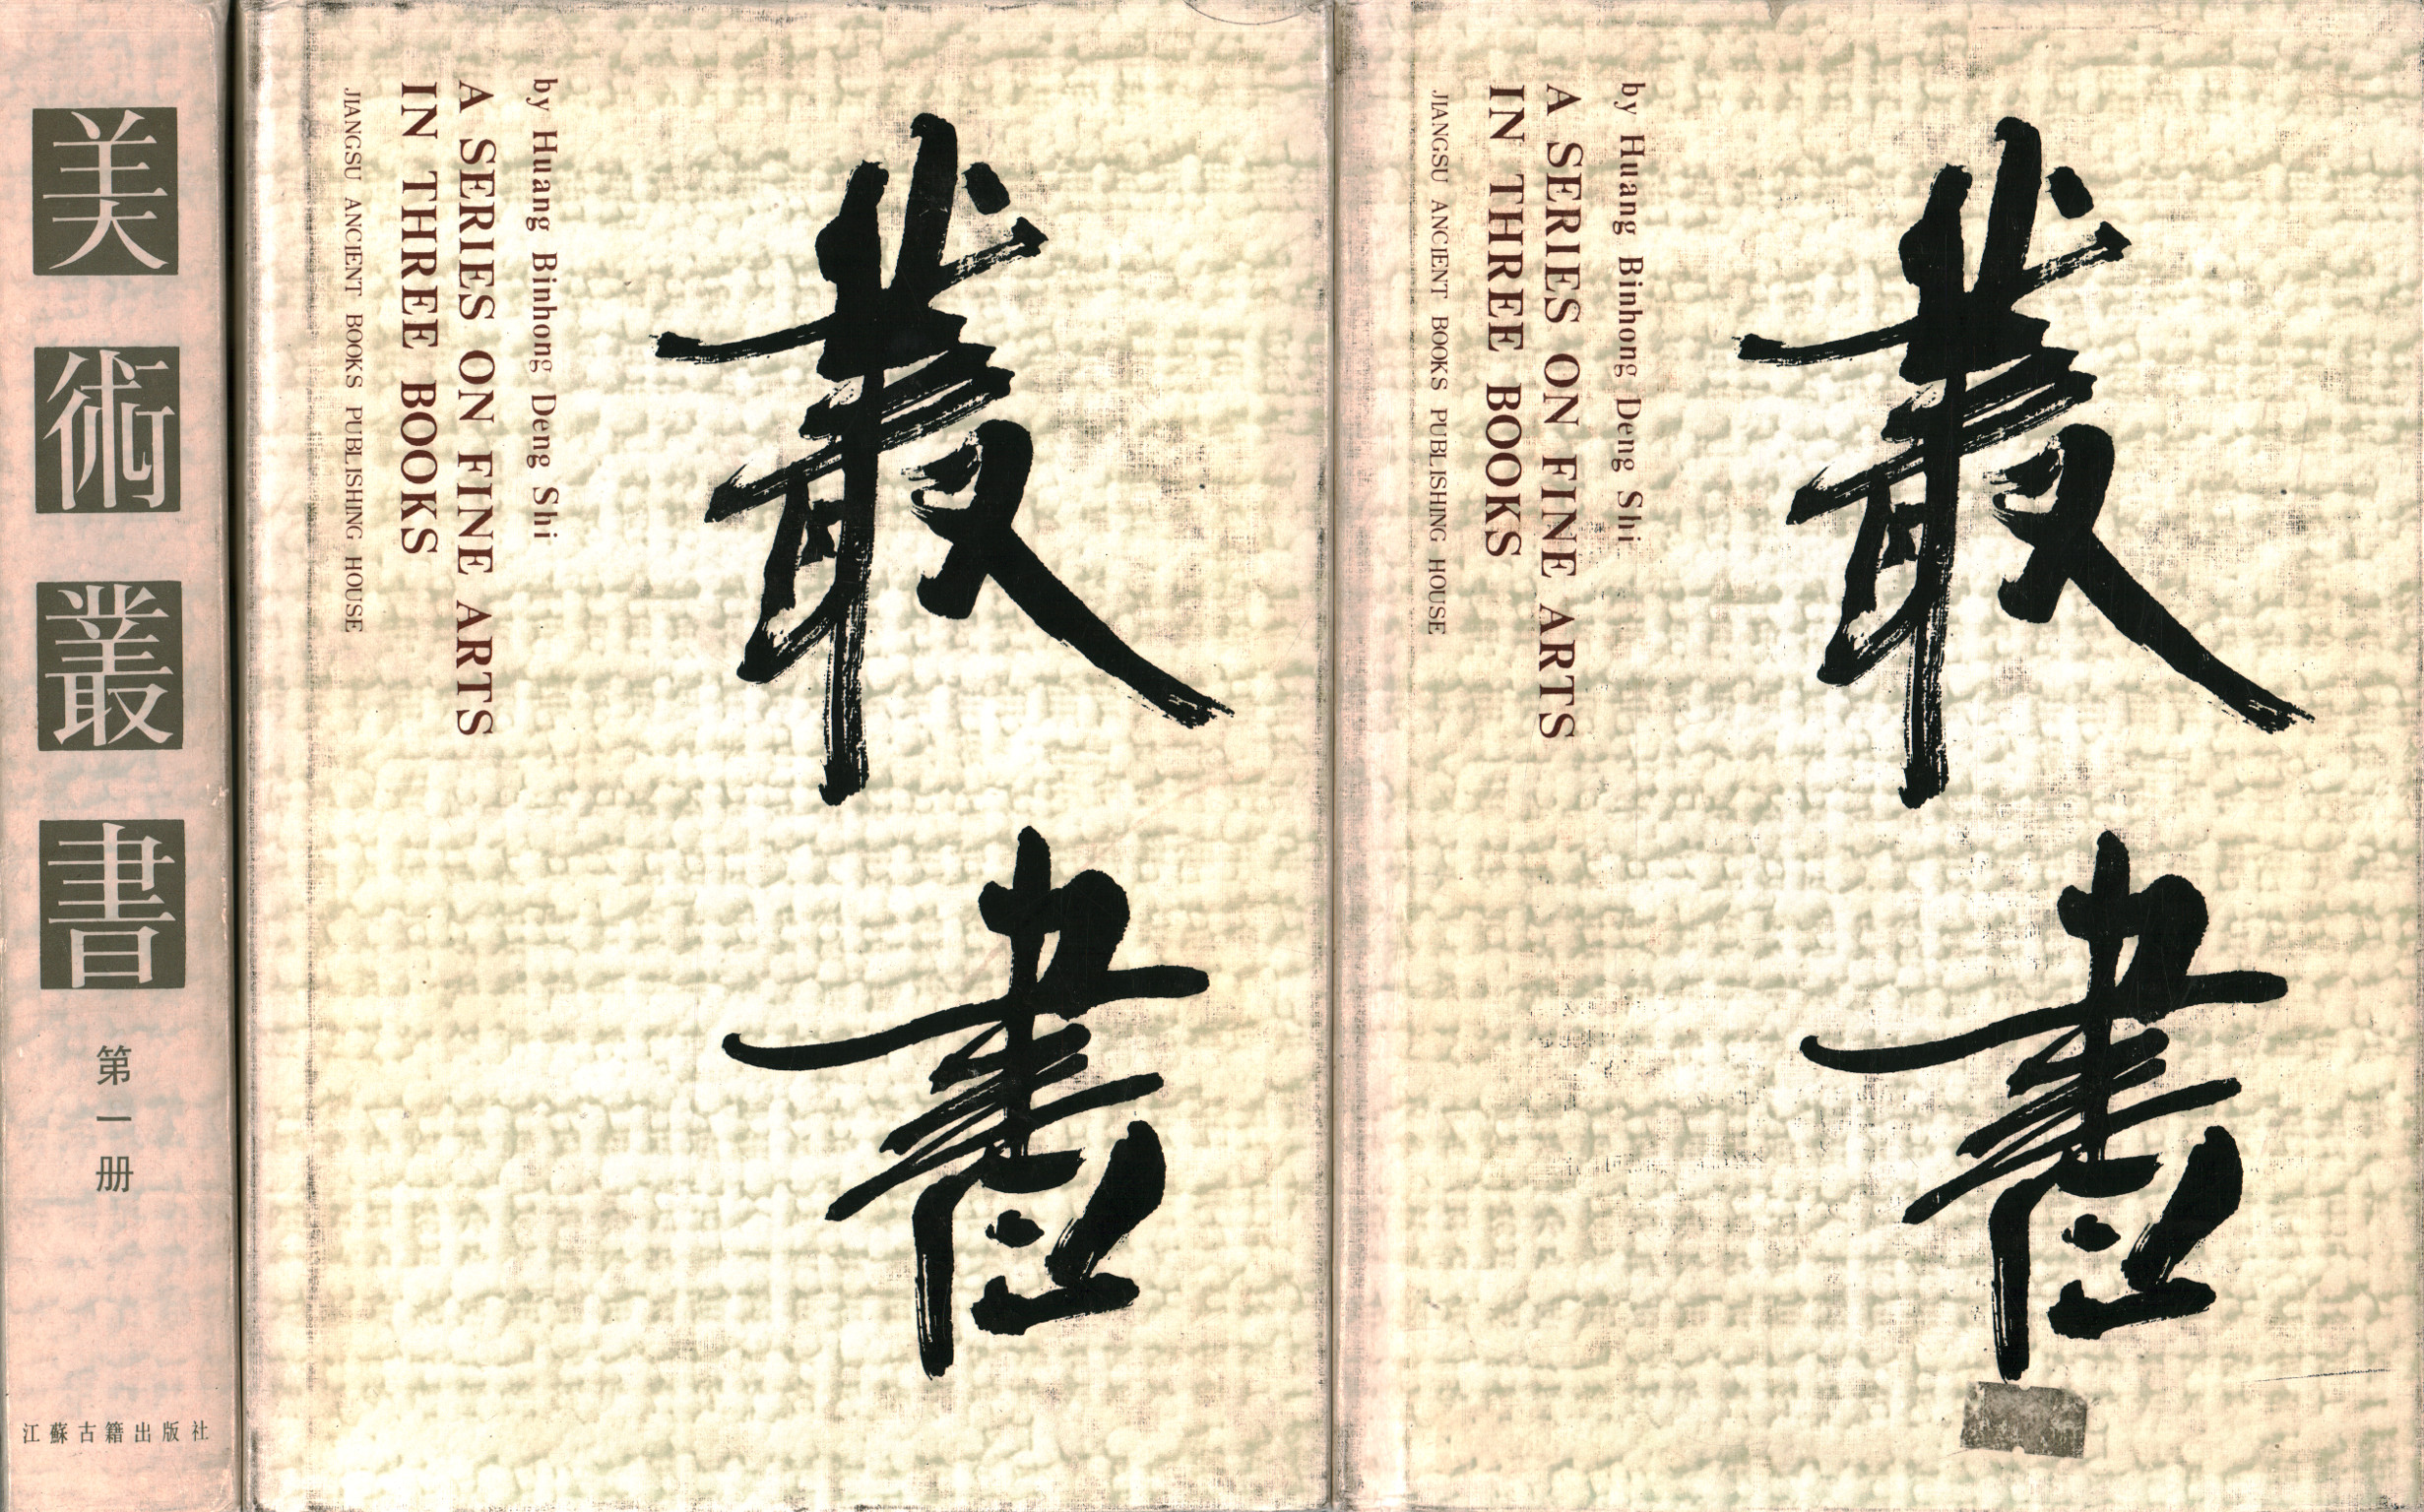 美術叢書
第一册
江蘇古籍出版社
by Huang Binhong Deng Shi
A SERIES ON FINE ARTS
IN THREE BOOKS
JIANGSU ANCIENT BOOKS PUBLISHING HOUSE
叢書
by Huang Binhong Deng Shi
A SERIES ON FINE ARTS
IN THREE BOOKS
JIANGSU ANCIENT BOOKS PUBLISHING HOUSE
叢書